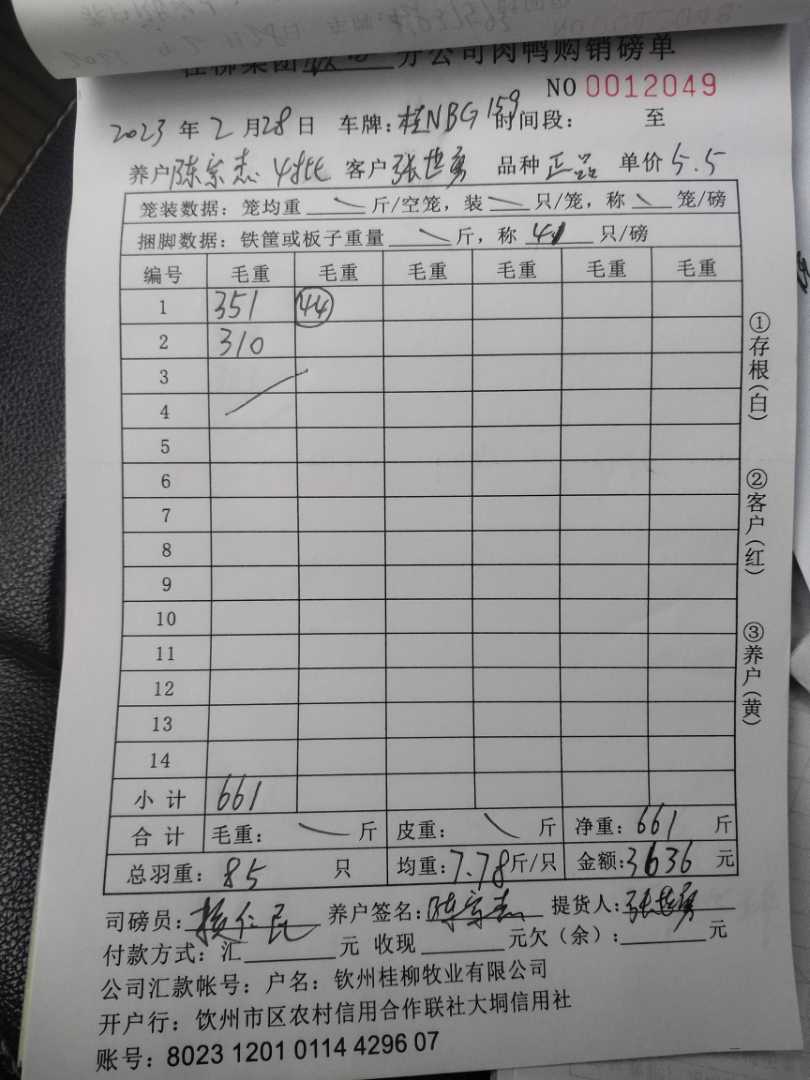 分公司肉鸭购销磅单
NO 0012049
2023 年 2 月 28 日 车牌: 桂NBG159 时间段: 至
养户 陈宗杰 4批 客户 张世勇 品种 正品 单价 5.5
笼装数据: 笼均重 \ 斤/空笼, 装 \ 只/笼, 称 \ 笼/磅
捆脚数据: 铁筐或板子重量 \ 斤, 称 41 只/磅
编号 毛重 毛重 毛重 毛重 毛重 毛重
1 351 44
2 310
3
4
5
6
7
8
9
10
11
12
13
14
小计 661
合计 毛重: \ 斤 皮重: \ 斤 净重: 661 斤
总羽重: 85 只 均重: 7.78 斤/只 金额: 3636 元
司磅员: 养户签名: 陈宗杰 提货人: 张世勇
付款方式: 汇 元 收现 元欠(余): 元
公司汇款帐号: 户名: 钦州桂柳牧业有限公司
开户行: 钦州市区农村信用合作联社大垌信用社
账号: 8023 1201 0114 4296 07
①存根(白)
②客户(红)
③养户(黄)